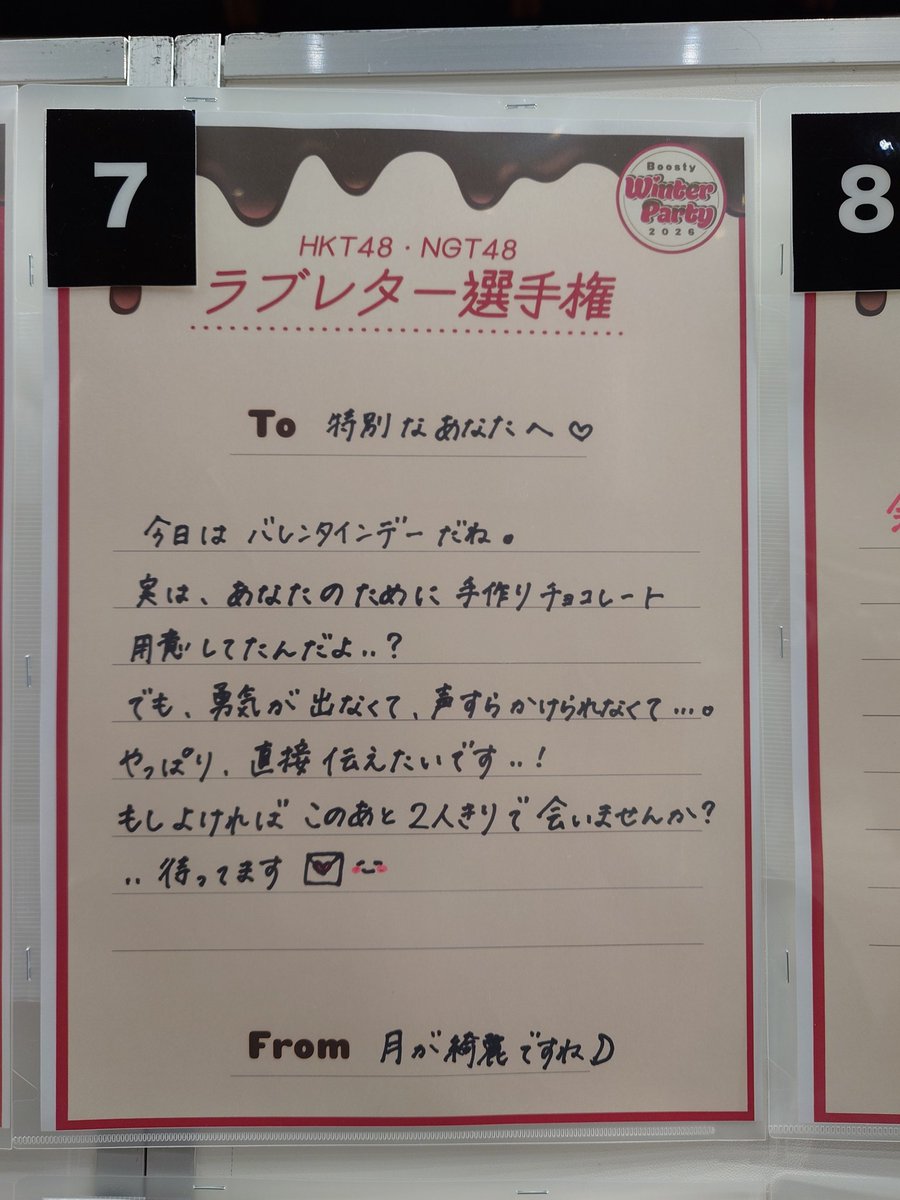 7
8
Boosty
Winter
Party
2026
HKT48・NGT48
ラブレター選手権
To 特別なあなたへ♡
今日は バレンタインデー だね。
実は、あなたのために 手作りチョコレート
用意してたんだよ..?
でも、勇気が 出なくて、声すらかけられなくて...。
やっぱり、直接 伝えたいです..!
もしよければ このあと 2人きりで 会いませんか?
..待ってます
From 月が綺麗ですね